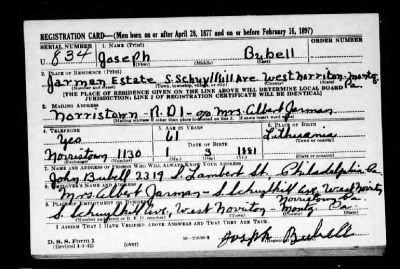 REGISTRATION CARD—(Men born on or after April 28, 1877 and on or before February 16, 1897)
SERIAL NUMBER 1. NAME (Print) ORDER NUMBER
U 834 Joseph Bubell
(First) (Middle) (Last)
2. PLACE OF RESIDENCE (Print)
Jarman Estate S. Schuylkill Ave West Norriton Montg Pa.
(Number and street) (Town, township, village, or city) (County) (State)
[THE PLACE OF RESIDENCE GIVEN ON THE LINE ABOVE WILL DETERMINE LOCAL BOARD
JURISDICTION; LINE 2 OF REGISTRATION CERTIFICATE WILL BE IDENTICAL]
3. MAILING ADDRESS
Norristown - R.D.1 c/o Mrs Albert Jarman
[Mailing address if other than place indicated on line 2. If same insert word same]
4. TELEPHONE 5. AGE IN YEARS 6. PLACE OF BIRTH
Yes 61 Lithuania
DATE OF BIRTH
Norristown 1130 1 3 1881
(Exchange) (Number) (Mo.) (Day) (Yr.) (State or country)
7. NAME AND ADDRESS OF PERSON WHO WILL ALWAYS KNOW YOUR ADDRESS
John Bubell 2319 S. Lambert St, Philadelphia Pa.
8. EMPLOYER'S NAME AND ADDRESS
Mrs. Albert Jarman - S. Schuylkill Ave, West Norriton
Norristown Pa
9. PLACE OF EMPLOYMENT OR BUSINESS
S. Schuylkill Ave, West Norriton Montg Pa.
(Number and street or R. F. D. number) (Town) (County) (State)
I AFFIRM THAT I HAVE VERIFIED ABOVE ANSWERS AND THAT THEY ARE TRUE.
D. S. S. Form 1
(Revised 4-1-42) (over)
Joseph Bubell